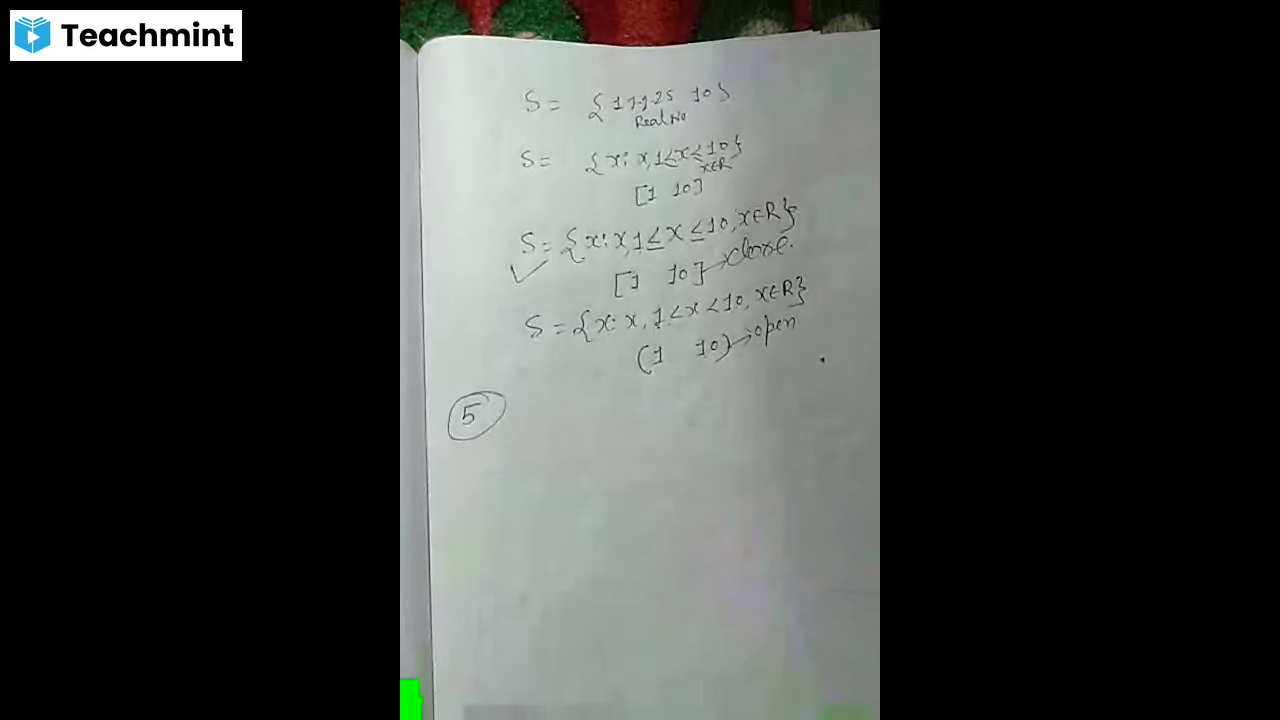 Teachmint
S = { 1 10 }
Real No
S = { x: x, 1≤x≤10 }
x∈R
[1 10]
S = {x: x, 1≤x≤10, x∈R}
[1 10] → close.
S = {x: x, 1<x<10, x∈R}
(1 10) → open
5